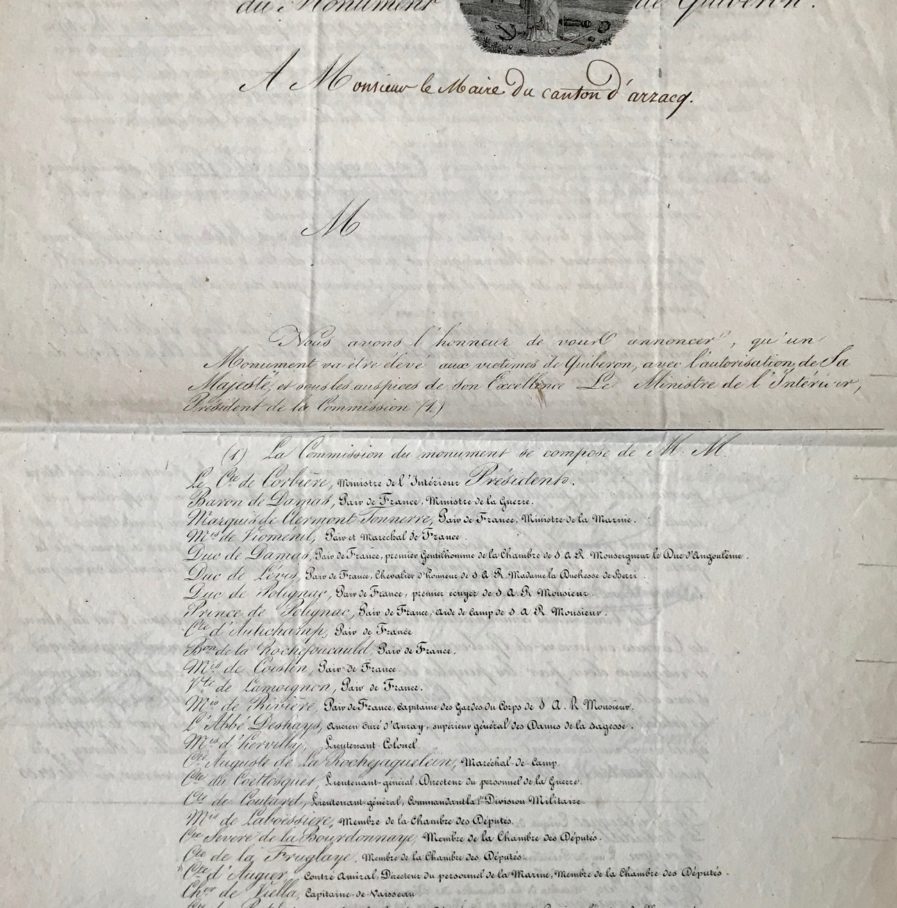 du Monument de Quiberon.
A Monsieur le Maire du canton d'arzacq.
M
Nous avons l'honneur de vous annoncer, qu'un
Monument va être élevé aux victimes de Quiberon, avec l'autorisation de Sa
Majesté, et sous les auspices de Son Excellence Le Ministre de l'Intérieur,
Président de la Commission (1.)
(1) La Commission du monument se compose de M. M.
Le Cte de Corbière, Ministre de l'Intérieur Président.
Baron de Damas, Pair de France, Ministre de la Guerre.
Marquis de Clermont Tonnerre, Pair de France, Ministre de la Marine.
Mis de Viomenil, Pair et Maréchal de France.
Duc de Damas, Pair de France, premier Gentilhomme de la Chambre de S A R Monseigneur le Duc d'Angoulême.
Duc de Lévis, Pair de France, Chevalier d'honneur de S A R Madame la Duchesse de Berri.
Duc de Polignac, Pair de France, premier écuyer de S A R Monsieur
Prince de Polignac, Pair de France, Aide de Camp de S A R Monsieur.
Cte d'Autichamp, Pair de France
Bon de la Rochefoucauld, Pair de France.
Mis de Coislin, Pair de France.
Vte de Lamoignon, Pair de France.
Mis de Rivière, Pair de France, Capitaine des Gardes du Corps de S A R Monsieur
L'Abbé Deshays, Ancien Curé d'Auray, supérieur général des Dames de la Sagesse.
Mis d'hervilly, Lieutenant Colonel
Cte Auguste de La Rochejaquelein, Maréchal de Camp.
Cte de Coëtlosquet, Lieutenant général, Directeur du personnel de la Guerre.
Cte de Coutard, Lieutenant général, Commandant la 1re Division Militaire
Mis de Laboessière, Membre de la Chambre des Députés.
Cte Severe de la Bourdonnaye, Membre de la Chambre des Députés.
Cte de la Fruglaye, Membre de la Chambre des Députés.
Cte d'Augier, Contre Amiral, Directeur du personnel de la Marine, Membre de la Chambre des Députés.
Cher de Vella, Capitaine de Vaisseau